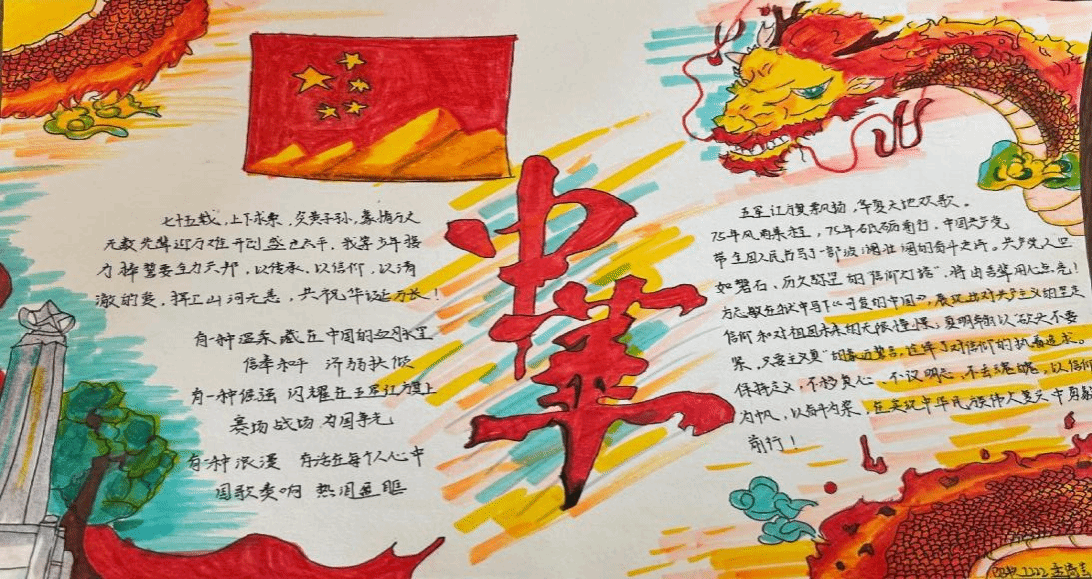 七十五载,上下求索,炎黄子孙,豪情万丈
无数先辈近万雄开创盛世太平,我等少年强
力肆誓要全力天邦,以传承、以信仰、以清
澈的爱,择工山河无恙,共祝华诞万长!
有一种温柔 藏在中国的血脉里
信奉和平 济弱扶倾
有一种倔强 闪耀在五星红旗上
赛场战场 为国争光
有一种浪漫 存活在每个人心中
国歌奏响 热泪盈眶
中華
五星红旗飘扬,华夏大地欢歌。
75年风雨兼程,75年砥砺前行,中国共产党
带全国人民书写了一部波澜壮阔的奋斗史诗,共产党人坚
如磐石、历久弥坚的"信仰灯塔",将由吾辈用心点亮!
方志敏在狱中写下《可爱的中国》,展现出对共产主义的坚定
信仰和对祖国未来的无限憧憬;夏明翰以"砍头不要
紧,只要主义真"的豪迈誓言,诠释了对信仰的执着追求。
保持定义,不移真心、不议明志、不去魂魄,以信仰
为帆,以奋斗为桨,在实现中华民族伟大复兴中勇毅
前行!